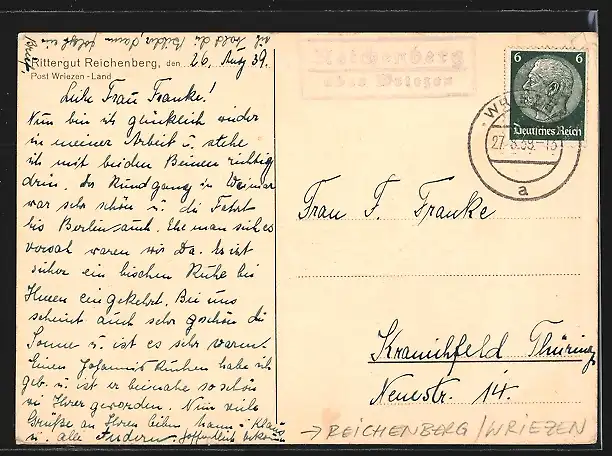 Rittergut Reichenberg, den 26. Aug 39.
Post Wriezen-Land
Liebe Frau Franke!
Nun bin ich glücklich wieder
in meiner Arbeit u. stehe
ich mit beiden Beinen richtig
drin. Der Rundgang in Weimar
war sehr schön u. die Fahrt
bis Berlin auch. Ehe man sich es
versah waren wir da. Es ist
sicher ein bischen Ruhe bei
Ihnen eingekehrt. Bei uns
scheint auch sehr schön die
Sonne u. ist es sehr warm.
Einen Johannisb. Kuchen habe ich
geb. u. ist er beinahe so schön
wie Ihrer geworden. Nun viele
Grüße an Ihren lieben Mann u. Klaus
u. alle Anderen
Reichenberg
über Wriezen
6 6
Deutsches Reich
27.8.39.-13
a
Frau F. Franke
Kranichfeld Thüring.
Neuestr. 14.
→ REICHENBERG/WRIEZEN